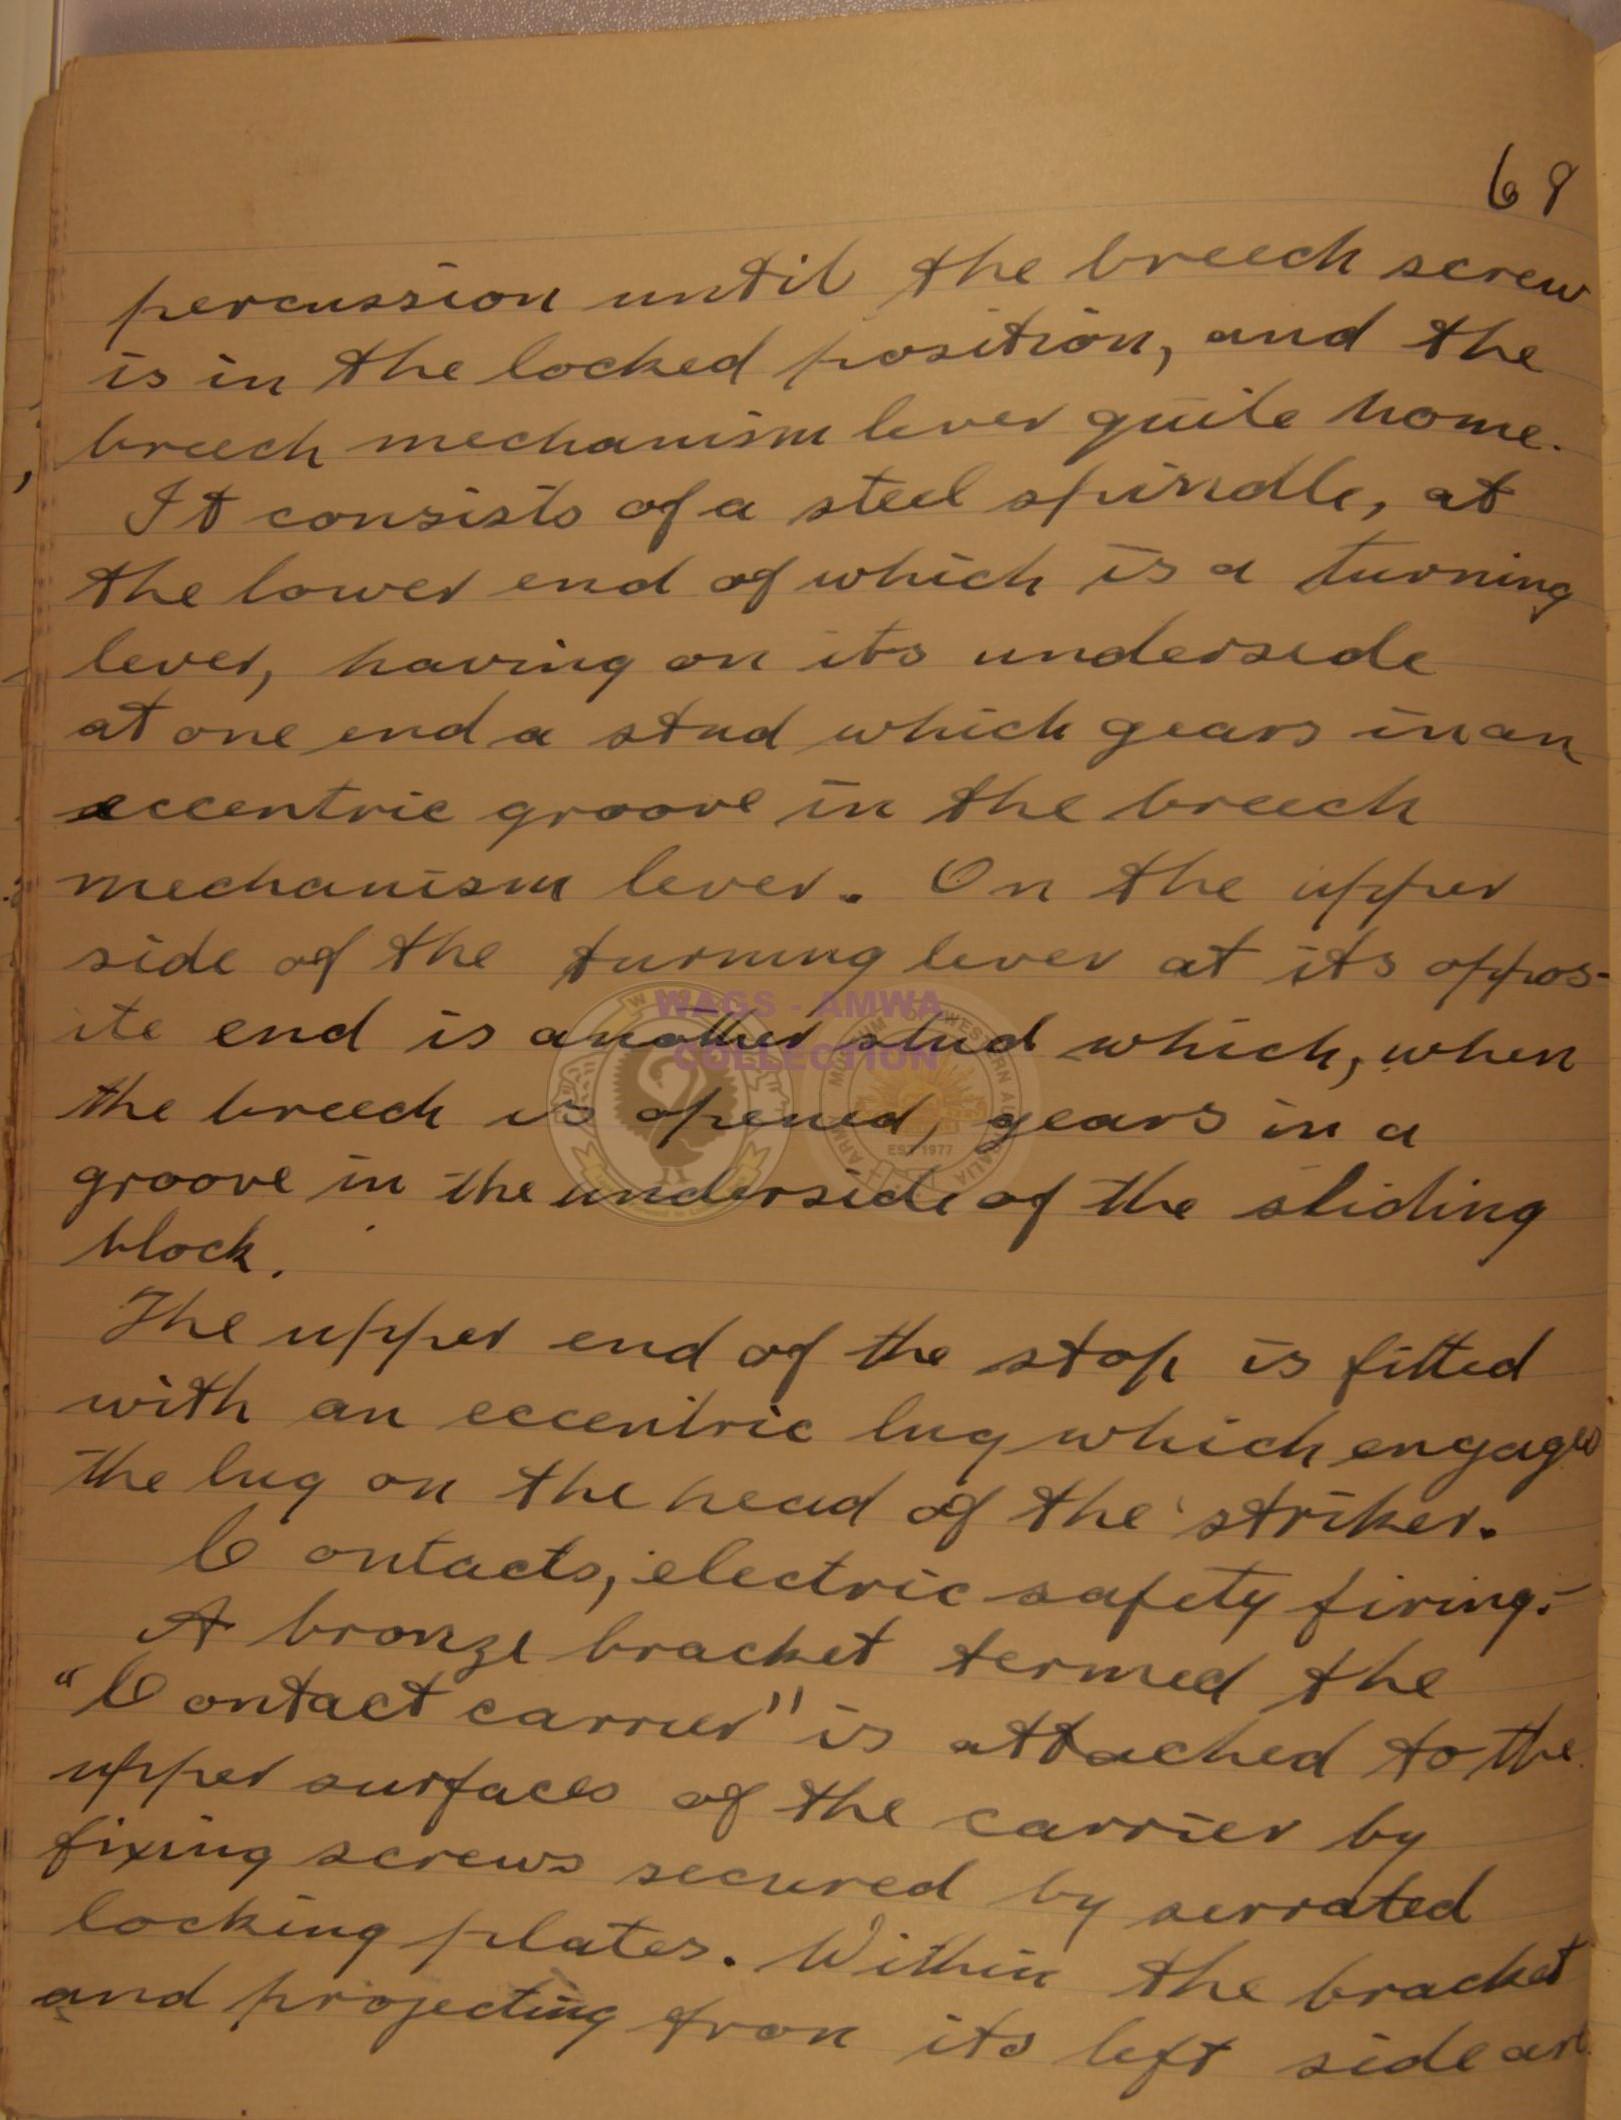 68
percussion until the breech screw
is in the locked position, and the
breech mechanism lever quite home.
It consists of a steel spindle, at
the lower end of which is a turning
lever, having on its underside
at one end a stud which gears in an
eccentric groove in the breech
mechanism lever. On the upper
side of the turning lever at its oppos-
ite end is another stud which, when
the breech is opened, gears in a
groove in the underside of the sliding
block.
The upper end of the stop is fitted
with an eccentric lug which engages
the lug on the head of the striker.
Contacts, electric safety firing:-
A bronze bracket termed the
"Contact carrier" is attached to the
upper surfaces of the carrier by
fixing screws secured by serrated
locking plates. Within the bracket
and projecting fron its left side are
WAGS - AMWA
COLLECTION
EST 1977